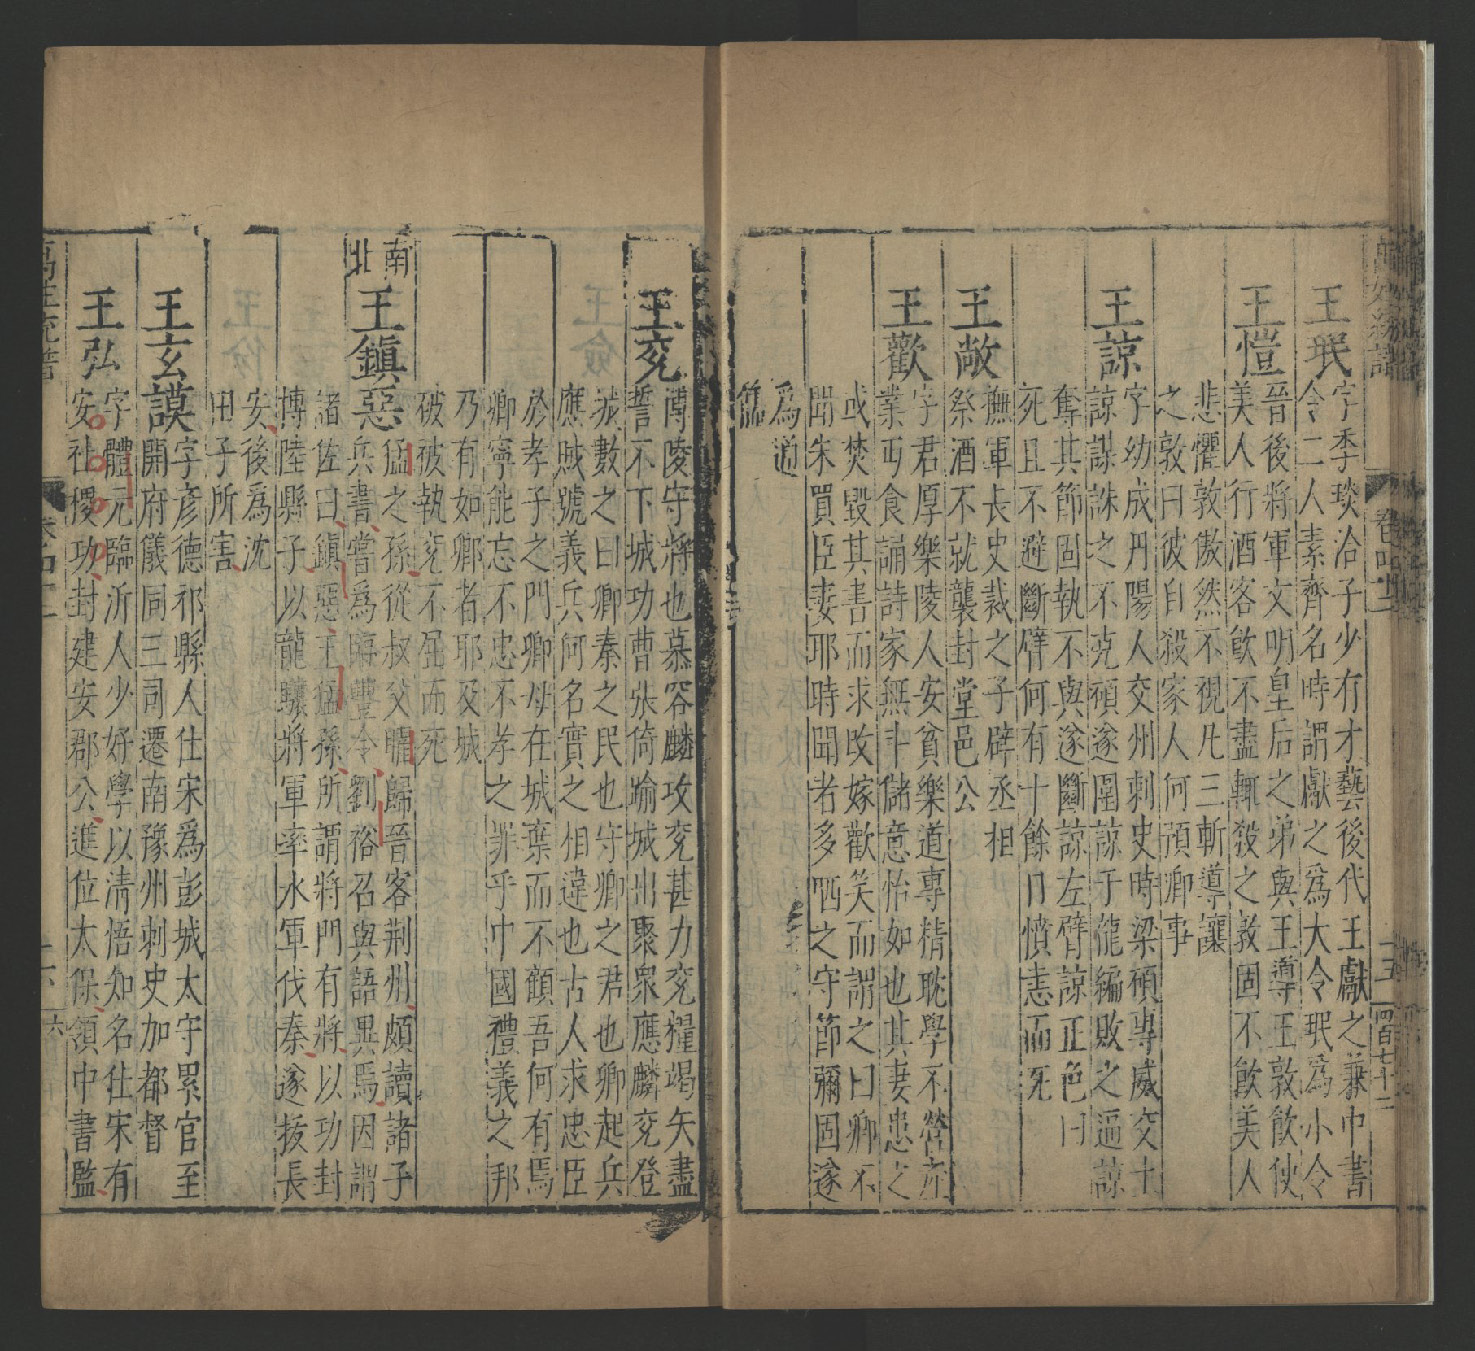 王珉
字季琰洽子少有才藝後代王獻之兼中書
令二人素齊名時謂獻之爲大令珉爲小令
王愷
晉後將軍文明皇后之弟與王導王敦飲使
美人行酒客飲不盡輒殺之敦固不飲美人
悲懼敦傲然不視凡三斬導讓
之敦曰彼自殺家人何預卿事
王諒
字幼成丹陽人交州刺史時梁碩專威交土
諒謀誅之不克碩遂圍諒于龍編敗之逼諒
奪其節固執不與遂斷諒左臂諒正色曰
死且不避斷臂何有十餘日憤恚而死
王敞
撫軍長史裁之子辟丞相
祭酒不就襲封堂邑公
王歡
字君厚樂陵人安貧樂道專精耽學不營產
業丐食誦詩家無斗儲意怡如也其妻患之
或焚毀其書而求改嫁歡笑而謂之曰卿不
聞朱買臣妻耶時聞者多哂之守節彌固遂
爲通
儒
王兗
博陵守將也慕容麟攻兗甚力兗糧竭矢盡
誓不下城功曹張倚踰城出聚衆應麟兗登
城數之曰卿秦之民也守卿之君也卿起兵
應賊號義兵何名實之相違也古人求忠臣
必孝子之門卿母在城棄而不顧吾何有焉
卿寧能忘不忠不孝之罪乎中國禮義之邦
乃有如卿者耶及城
破被執兗不屈而死
南北
王鎮惡
猛之孫從叔父曜歸晉客荆州頗讀諸子
兵書嘗爲臨澧令劉裕召與語異焉因謂
諸佐曰鎮惡王猛孫所謂將門有將以功封
博陸縣子以龍驤將軍率水軍伐秦遂拔長
安後爲沈
田子所害
王玄謨
字彥德祁縣人仕宋爲彭城太守累官至
開府儀同三司遷南豫州刺史加都督
王弘
字體元臨沂人少好學以清悟知名仕宋有
安社稷功封建安郡公進位太保領中書監